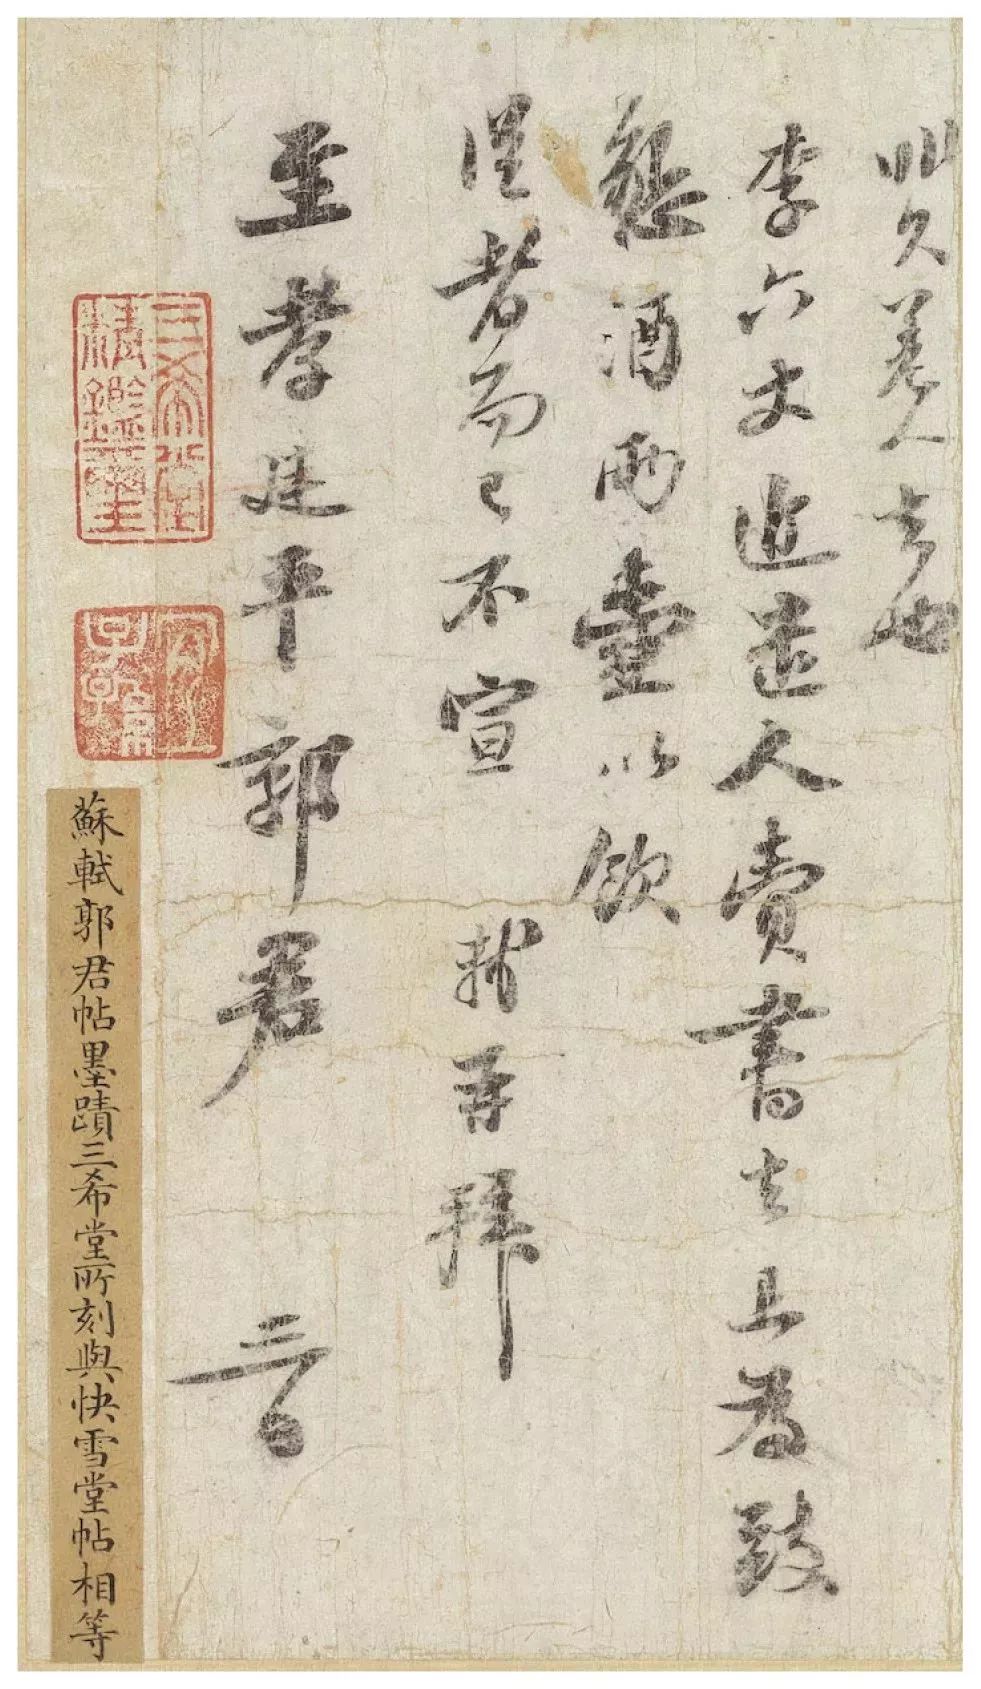 此久差人去也
李六丈近遣人賫書去且為致
懇酒兩壺以飲
從者而已不宣 軾再拜
至孝廷平郭君 三日
三希堂精鑒璽
宜子孫
蘇軾郭君帖墨蹟三希堂所刻與快雪堂帖相等